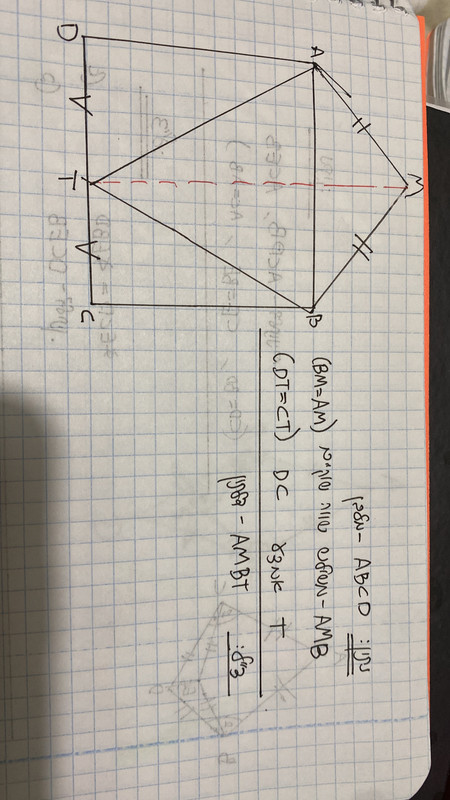 M
A
B
D
T
C
נתון: ABCD - מלבן
AMB - משולש שווה שוקיים (BM=AM)
T אמצע DC (DT=CT)
צ"ל: AMBT - דלתון